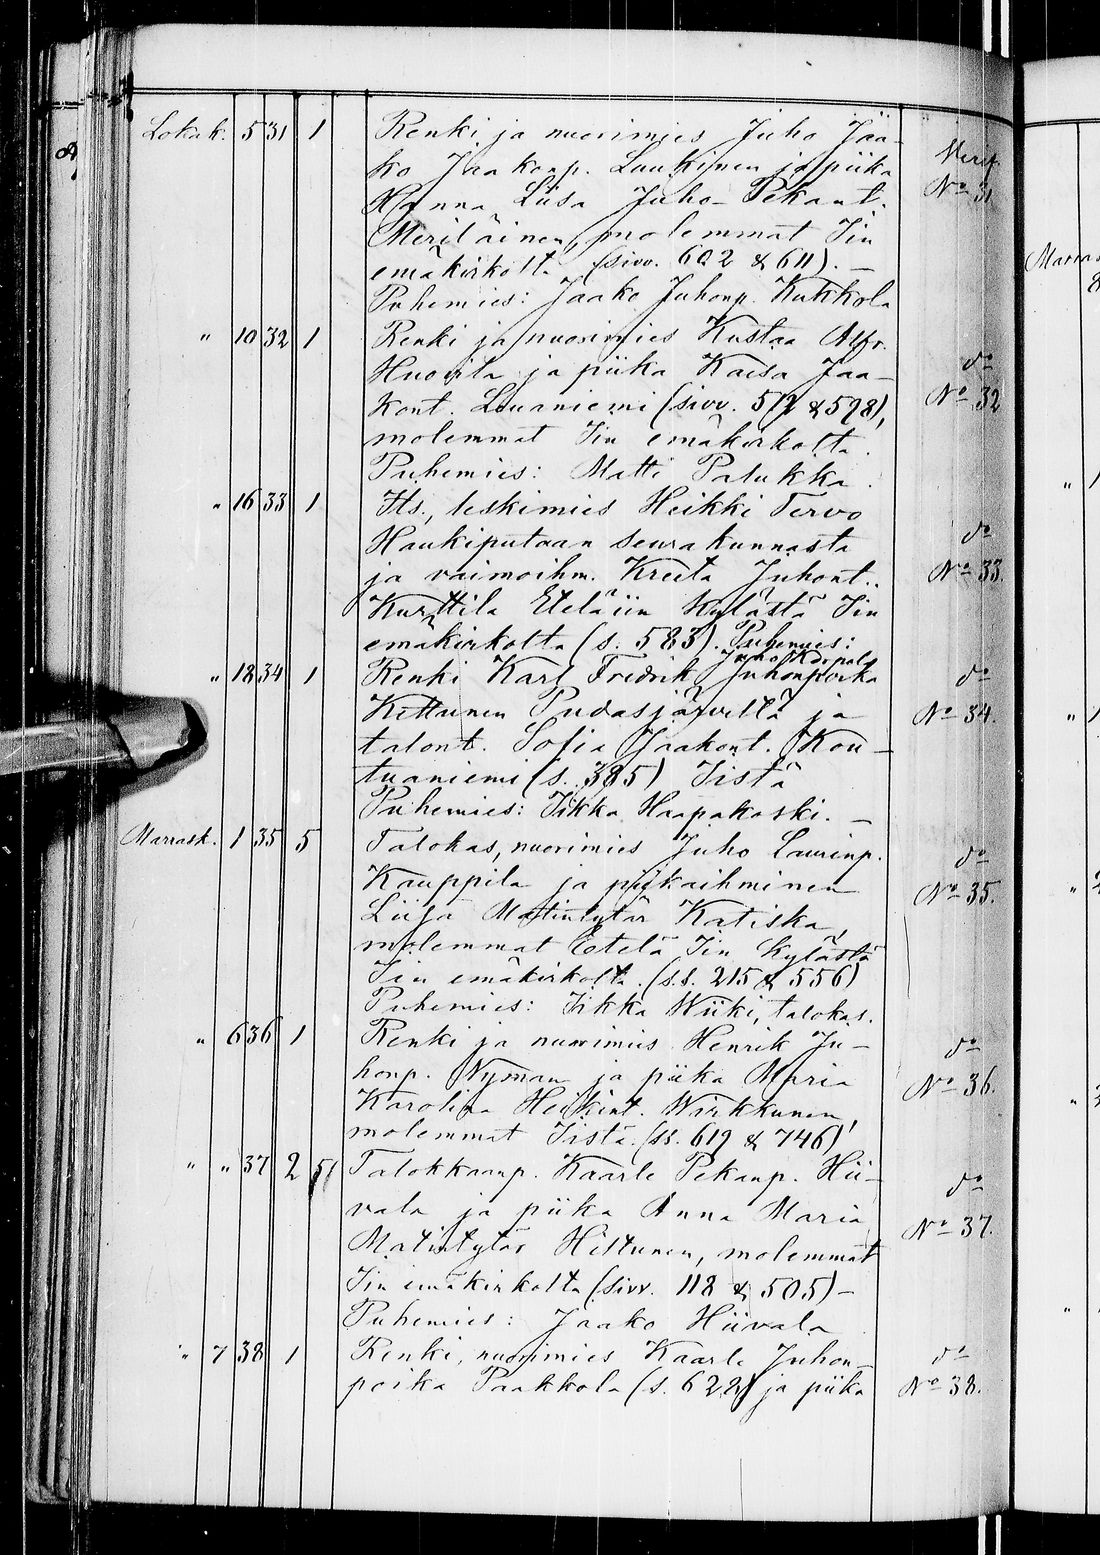 Lokak. 5 31 1 Renki ja nuorimies Juho Jaa-
ko Jaakonp. Laukinen ja piika Verif.
Hanna Liisa Juho-Pekant. No 31
Meriläinen, molemmat Iin
emäkirkolta (sivv. 602 & 611). —
Puhemies: Jaako Juhonp. Kukkola
" 10 32 1 Renki ja nuorimies Kustaa Alfr.
Huovila ja piika Kaisa Jaa- do
kont. Louaniemi (sivv. 512 & 528), No 32
molemmat Iin emäkirkolta.
Puhemies: Matti Palukka.
" 16 33 1 Its., leskimies Heikki Tervo
Haukiputaan seurakunnasta do
ja vaimoihm. Kreeta Juhont. No 33.
Kurttila Eteläiin kylästä Iin
emäkirkolta (s. 583). Puhemies:
Juho Karpala
" 18 34 1 Renki Karl Fredrik Juhonpoika do
Kettunen Pudasjärveltä ja No 34.
talont. Sofia Jaakont. Kou-
tuaniemi (s. 385) Iistä
Puhemies: Iikka Haapakoski. —
Marrask. 1 35 5 Talokas, nuorimies Juho Laurinp. do
Kauppila ja piikaihminen No 35.
Liisa Matintytär Katiska,
molemmat Etelä Iin kylästä
Iin emäkirkolta. (s.s. 215 & 556)
Puhemies: Iikka Wiiki, talokas.
" 6 36 1 Renki ja nuorimies Henrik Ju- do
honp. Nyman ja piika Maria No 36.
Karolina Heikint. Wirkkunen,
molemmat Iistä. (ss. 619 & 746)
" " 37 2 5/ Talokkaanp. Kaarle Pekanp. Hii- do
vala ja piika Anna Maria No 37.
Matintytär Hiltunen, molemmat
Iin emäkirkolta (sivv. 118 & 505) —
Puhemies: Jaako Hiivala
" 7 38 1 Renki, nuorimies Kaarle Juhon- do
poika Paakkola (s. 622) ja piika No 38.
Marras